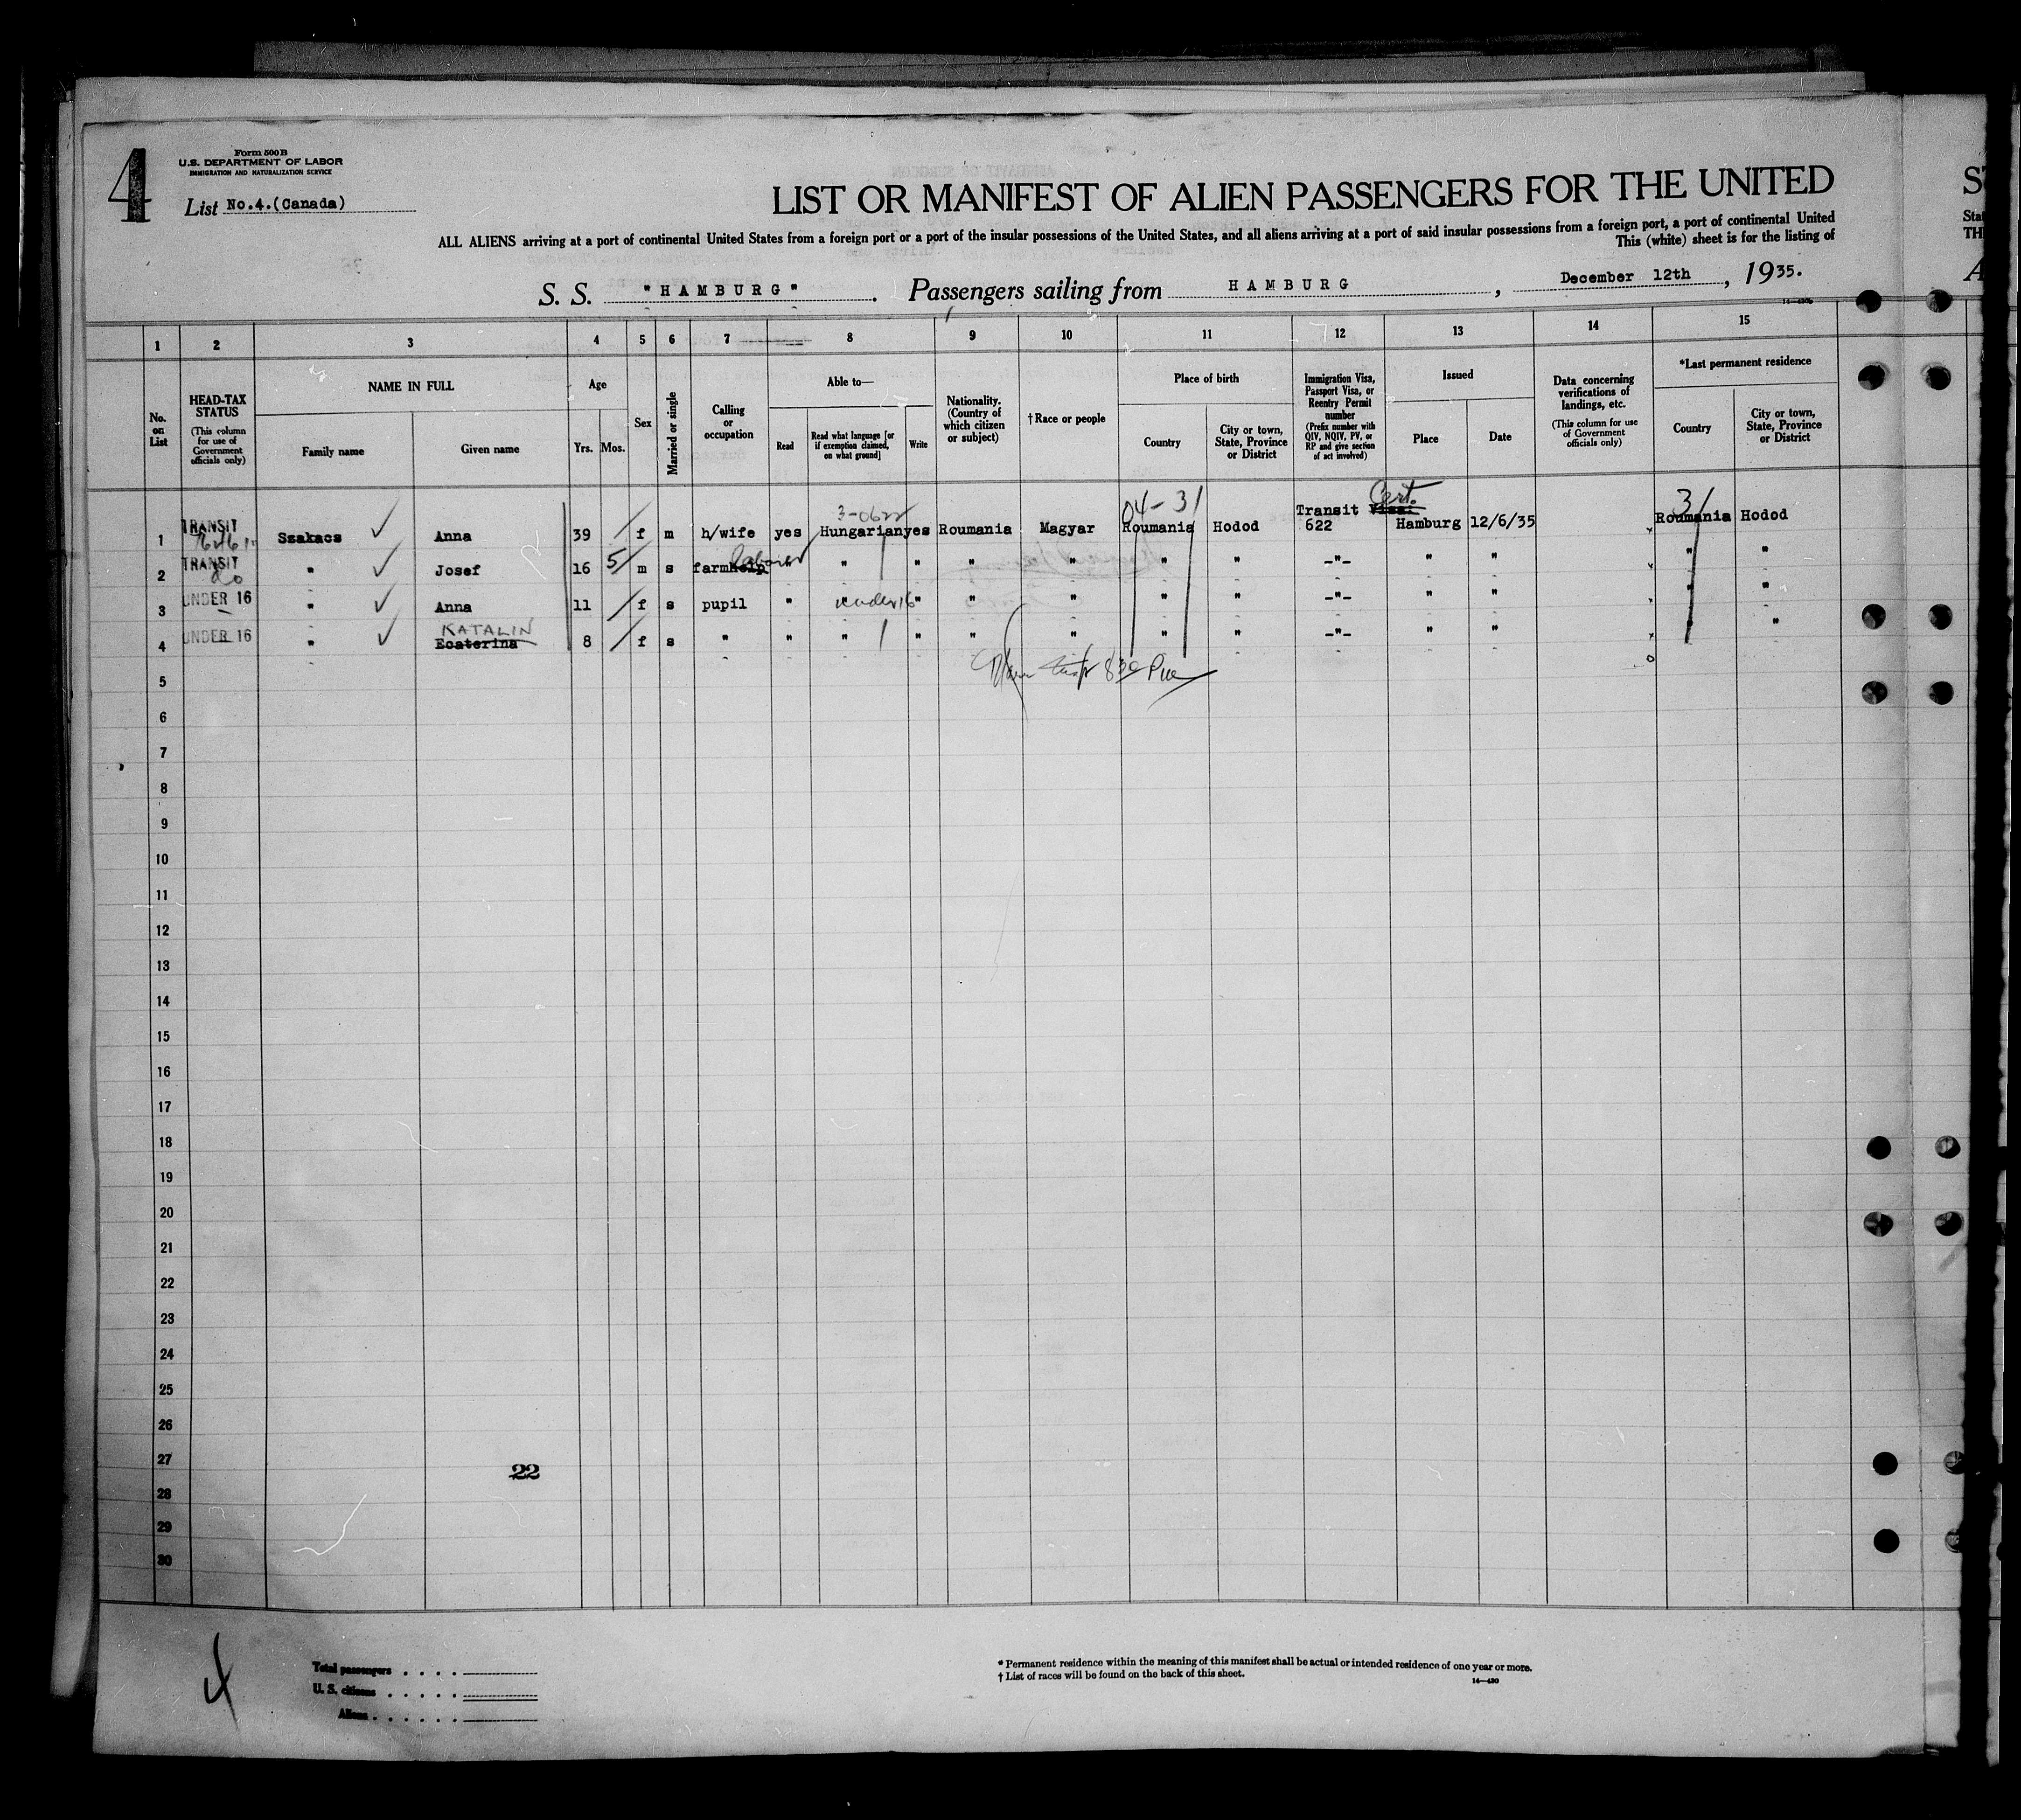 4
Form 500B
U.S. DEPARTMENT OF LABOR
IMMIGRATION AND NATURALIZATION SERVICE
List No.4.(Canada)
LIST OR MANIFEST OF ALIEN PASSENGERS FOR THE UNITED
ALL ALIENS arriving at a port of continental United States from a foreign port or a port of the insular possessions of the United States, and all aliens arriving at a port of said insular possessions from a foreign port, a port of continental United
This (white) sheet is for the listing of
S. S. "HAMBURG" . Passengers sailing from HAMBURG , December 12th , 1935.
1 2 3 4 5 6 7 8 9 10 11 12 13 14 15
No. on List
HEAD-TAX STATUS
(This column for use of Government officials only)
NAME IN FULL
Family name
Given name
Age
Yrs. Mos.
Sex
Married or single
Calling or occupation
Able to—
Read
Read what language [or if exemption claimed, on what ground]
Write
Nationality. (Country of which citizen or subject)
† Race or people
Place of birth
Country
City or town, State, Province or District
Immigration Visa, Passport Visa, or Reentry Permit number
(Prefix number with QIV, NQIV, PV, or RP and give section of act involved)
Issued
Place
Date
Data concerning verifications of landings, etc.
(This column for use of Government officials only)
*Last permanent residence
Country
City or town, State, Province or District
04-31 Cert. 3
1 TRANSIT Szakacs Anna 39 f m h/wife yes Hungarian yes Roumania Magyar Roumania Hodod Transit Visa: 622 Hamburg 12/6/35 Roumania Hodod
2 TRANSIT " Josef 16 5 m s farmhelp laborer " " " " " " " -"- " " " "
3 UNDER 16 " Anna 11 f s pupil " under 16 " " " " " -"- " " " "
KATALIN
4 UNDER 16 " Ecaterina 8 f s " " " " " " " " -"- " " " "
5
6
7
8
9
10
11
12
13
14
15
16
17
18
19
20
21
22
23
24
25
26
27
22
28
29
30
4
Total passengers . . . .
U. S. citizens . . . . .
Aliens . . . . . .
* Permanent residence within the meaning of this manifest shall be actual or intended residence of one year or more.
† List of races will be found on the back of this sheet.
14—430